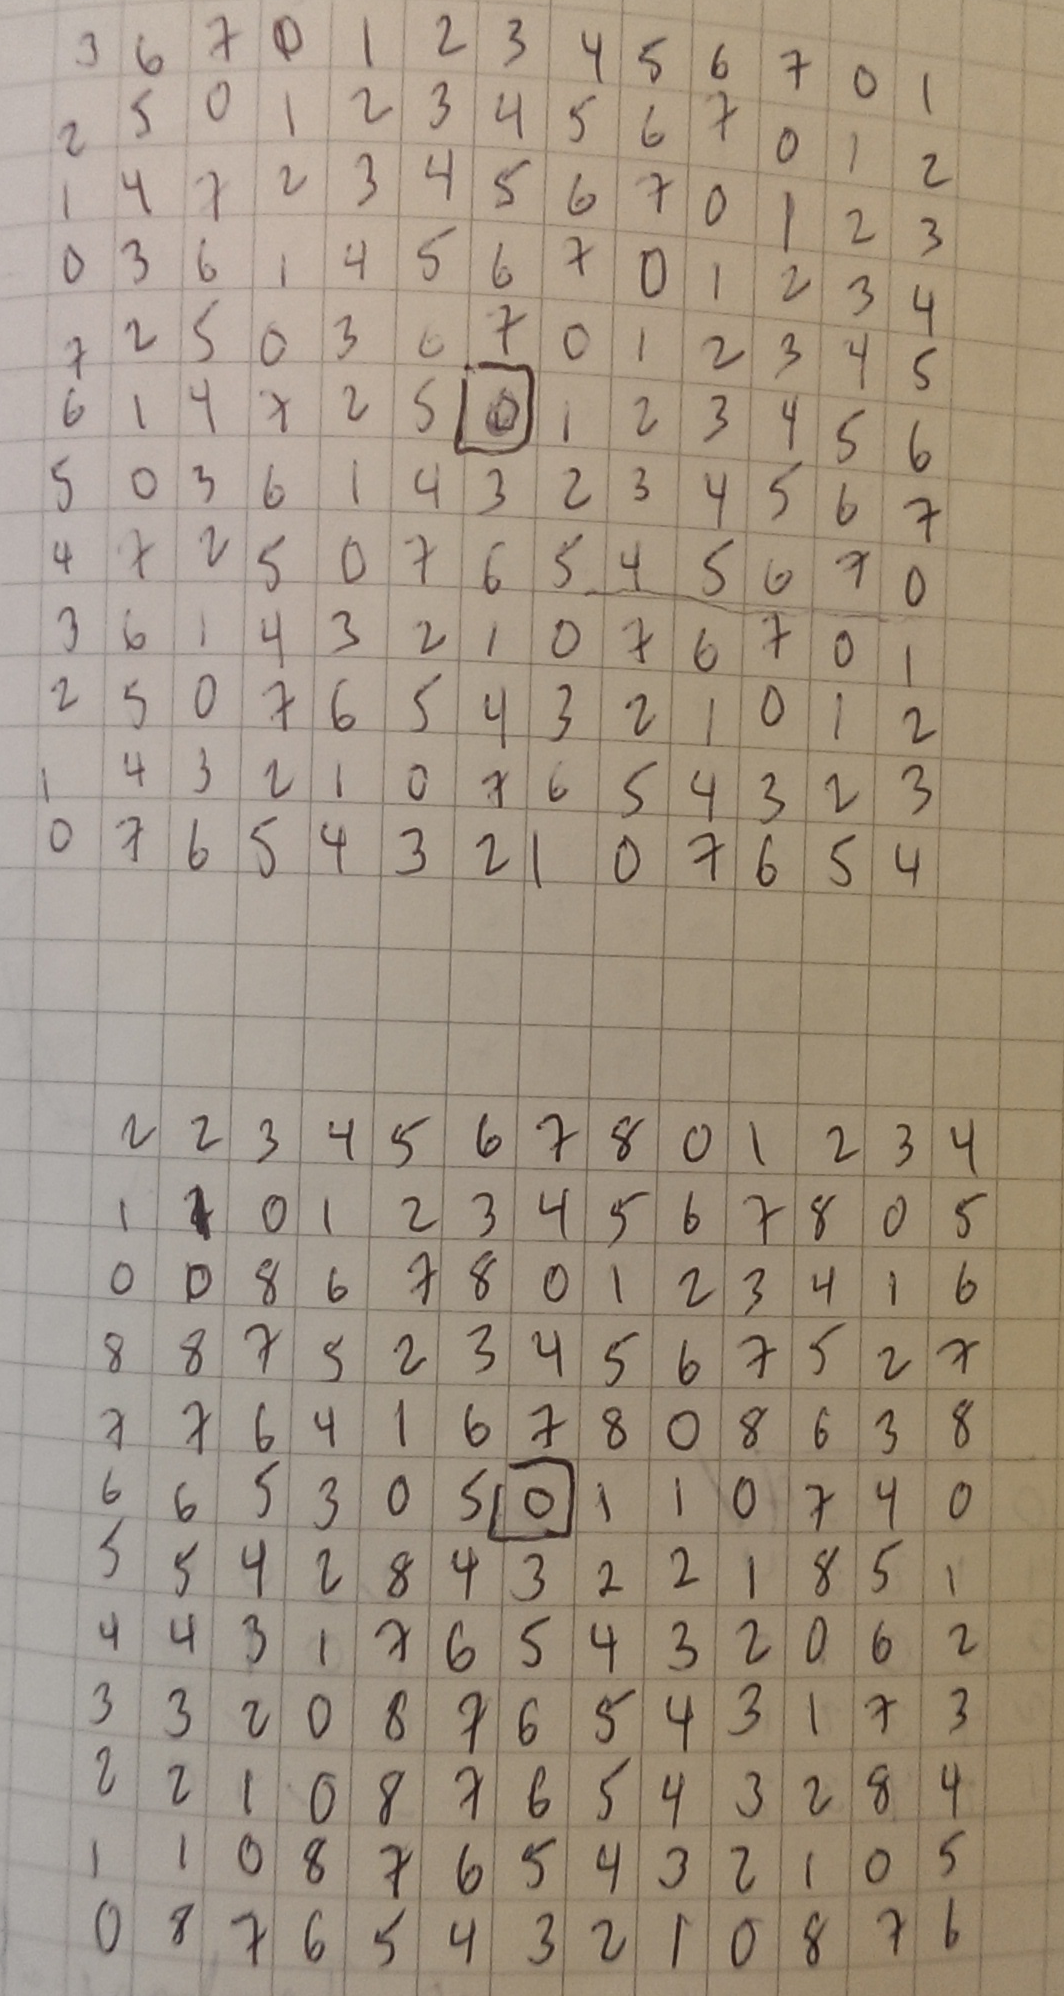 3 6 7 0 1 2 3 4 5 6 7 0 1
2 5 0 1 2 3 4 5 6 7 0 1 2
1 4 7 2 3 4 5 6 7 0 1 2 3
0 3 6 1 4 5 6 7 0 1 2 3 4
7 2 5 0 3 6 7 0 1 2 3 4 5
6 1 4 7 2 5 0 1 2 3 4 5 6
5 0 3 6 1 4 3 2 3 4 5 6 7
4 7 2 5 0 7 6 5 4 5 6 7 0
3 6 1 4 3 2 1 0 7 6 7 0 1
2 5 0 7 6 5 4 3 2 1 0 1 2
1 4 3 2 1 0 7 6 5 4 3 2 3
0 7 6 5 4 3 2 1 0 7 6 5 4
2 2 3 4 5 6 7 8 0 1 2 3 4
1 1 0 1 2 3 4 5 6 7 8 0 5
0 0 8 6 7 8 0 1 2 3 4 1 6
8 8 7 5 2 3 4 5 6 7 5 2 7
7 7 6 4 1 6 7 8 0 8 6 3 8
6 6 5 3 0 5 0 1 1 0 7 4 0
5 5 4 2 8 4 3 2 2 1 8 5 1
4 4 3 1 7 6 5 4 3 2 0 6 2
3 3 2 0 8 7 6 5 4 3 1 7 3
2 2 1 0 8 7 6 5 4 3 2 8 4
1 1 0 8 7 6 5 4 3 2 1 0 5
0 8 7 6 5 4 3 2 1 0 8 7 6